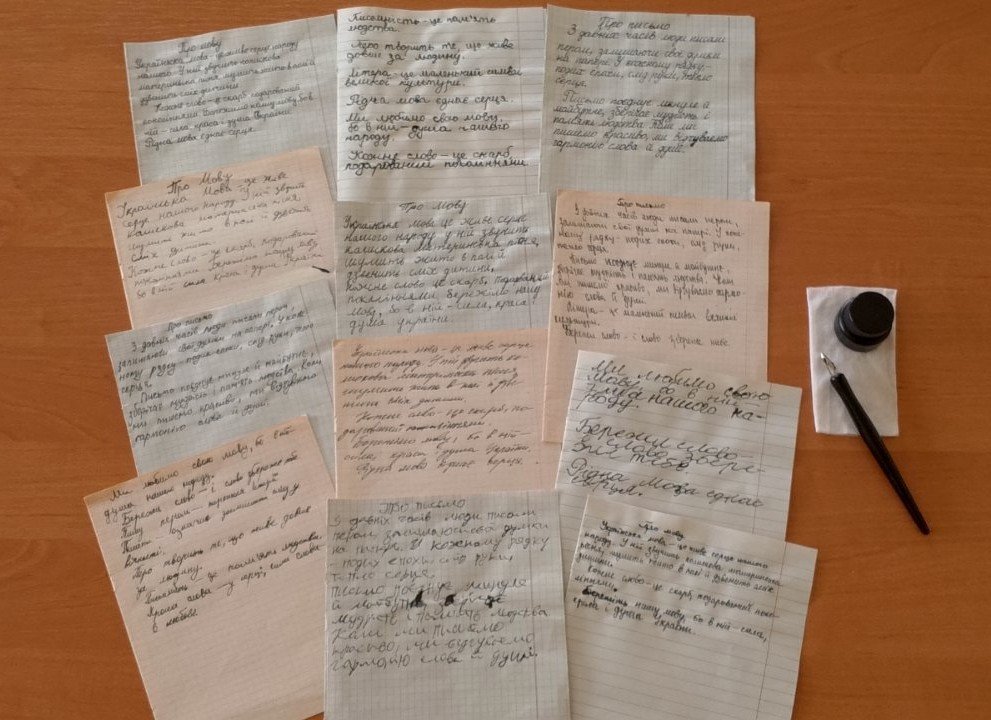 Про мову
Українська мова - це живе серце народу
нашого. У ній звучить колискова
материнська пісня, шумить жито в полі й
дзвенить сміх дитини
Кожне слово - це скарб, подарований
поколіннями. Бережімо нашу мову, бо в
ній - сила, краса і душа України
Рідна мова єднає серця.
Писемність - це пам'ять
людства.
Перо творить те, що живе
довше за людину.
Літера - це маленький символ
великої культури.
Рідна мова єднає серця.
Ми любимо свою мову,
бо в ній - душа нашого
народу.
Кожне слово - це скарб,
подарований поколіннями.
Про письмо
З давніх часів люди писали
пером, залишаючи свої думки
на папері. У кожному рядку -
подих епохи, слід руки, тепло
серця.
Письмо поєднує минуле й
майбутнє, зберігає мудрість і
пам'ять людства. Коли ми
пишемо красиво, ми відчуваємо
гармонію слова й душі.
Про Мову
Українська Мова - це живе
серце нашого народу. У ній звучить
колискова материнська пісня,
шумить жито в полі й дзвенить
сміх дитини.
Кожне слово - це скарб, подарований
поколіннями. Бережімо нашу мову,
бо в ній сила, краса і душа України
Про Мову
Українська Мова це живе серце
нашого народу у ній звучить
каліскова Материнська пісня,
шумить жито в полі й
дзвенить сміх дитини,
кожне слово це скарб, подарований
поколіннями. Бережімо нашу
мову, бо в ній - сила, краса і
душа україни.
Про письмо
З давніх часів люди писали пером,
залишаючи свої думки на папері. У кож-
ному рядку - подих епохи, слід руки,
тепло серця.
Письмо поєднує минуле й майбутнє,
зберігає мудрість і пам'ять людства. Коли
ми пишемо красиво, ми відчуваємо гармо-
нію слова й душі.
Літера - це маленький символ великої
культури.
Бережи слово - і слово збереже тебе.
Про письмо
З давніх часів люди писали пером,
залишаючи свої думки на папері. У кож-
ному рядку - подих епохи, слід руки, тепло
серця.
Письмо поєднує минуле й майбутнє,
зберігає мудрість і пам'ять людства. Коли
ми пишемо красиво, ми відчуваємо
гармонію слова й душі.
Українська мова - це живе серце
нашого народу. У ній звучить ко-
лискова материнська пісня
шумить жито в полі й дзве-
нить сміх дитини.
Кожне слово - це скарб, по-
дарований поколіннями.
Бережімо мову, бо в ній -
сила, краса і душа України.
Рідна мова єднає серця.
Ми любимо свою
Мову, бо в ній
душа нашого на-
роду.
Бережи слово -
і слово збере-
же тебе.
Рідна Мова єднає
серця.
Ми любимо свою мову, бо в ній
душа нашого народу.
Бережи слово - і слово збереже тебе
Пишу пером -
Писати - означає залишати слід у
вічності.
Перо творить те, що живе довше
за людину.
Писемність - це пам'ять людства
Краса слова - у серці, сила слова -
в любові.
Про письмо
З давніх часів люди писали
пером, залишаючи свої думки
на папері. У кожному рядку
подих епохи, слід руки,
тепло серця.
Письмо поєднує минуле
й майбутнє
мудрість і пам'ять людства
Коли ми пишемо
красиво, ми відчуваємо
гармонію слова й душі.
Про мову
Українська мова - це живе серце нашого
народу. У ній звучить колискова материнська
пісня, шумить жито в полі й дзвенить сміх
дитини.
Кожне слово - це скарб, подарований поко-
ліннями.
Бережіть нашу мову бо в ній - сила,
краса і душа України.